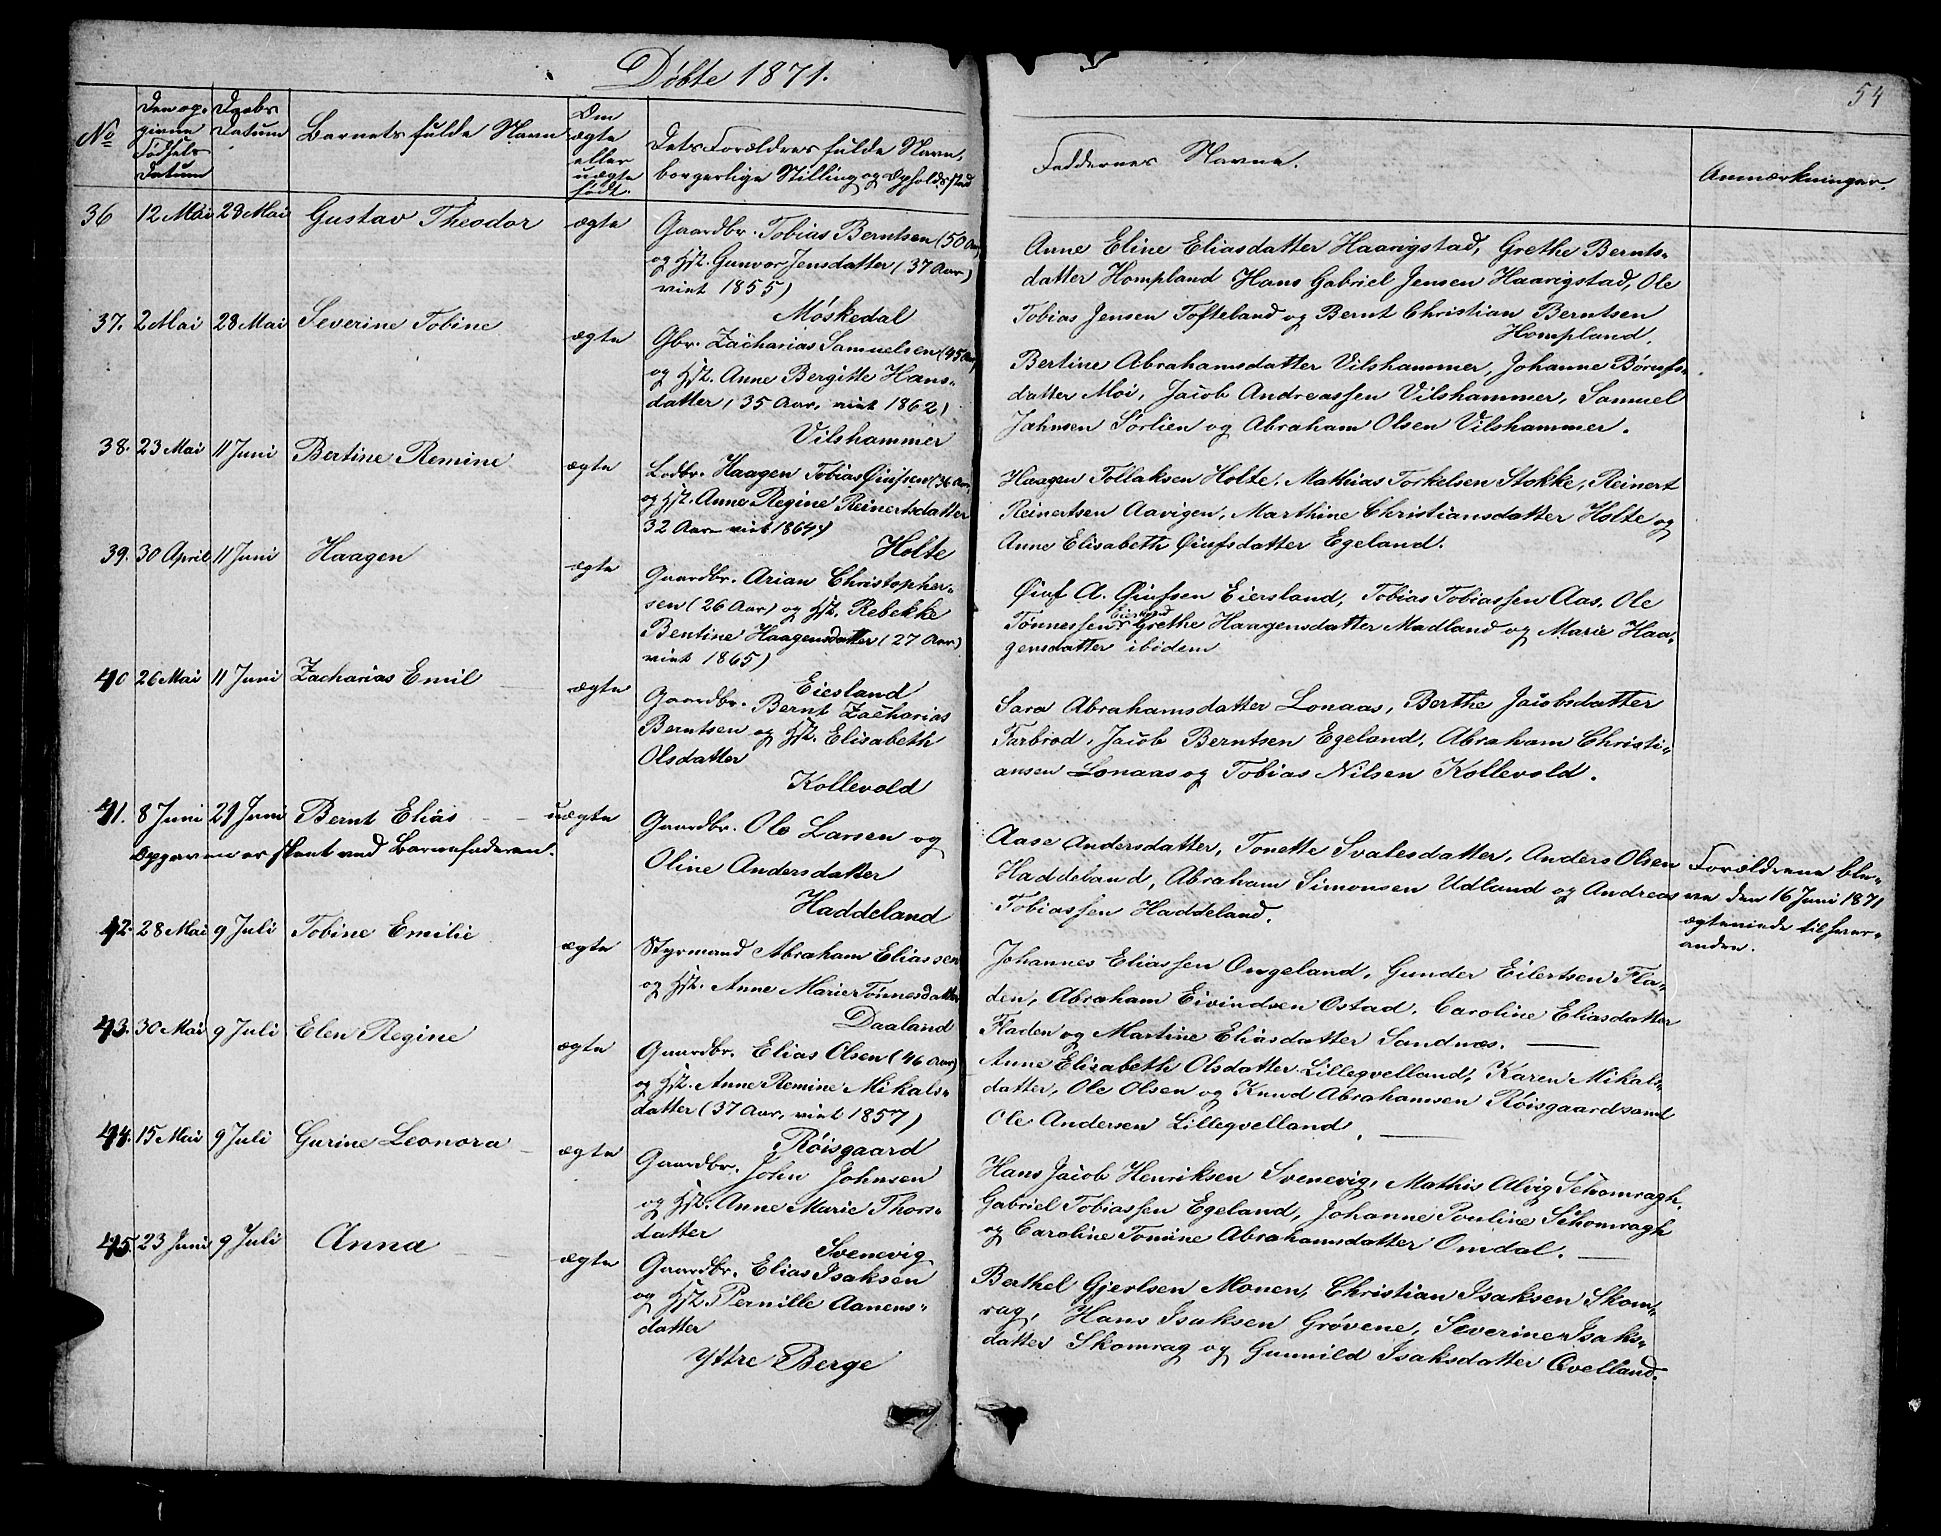 Døbte 1871.
54
No
Den op-
givne
Fødsels-
Datum
Daabs
Datum
Barnets fulde Navn
Om
ægte
eller
uægte
født.
Dets Forældres fulde Navn,
borgerlige Stilling og Opholdssted
Faddernes Navne.
Anmærkninger.
36 12 Mai 28 Mai Gustav Theodor ægte
Gaardbr. Tobias Berntsen (50 Aar)
og Hst. Gunvor Jensdatter (37 Aar)
viet 1855)
Møskedal
Anne Eline Eliasdatter Haarigstad, Grethe Bernts-
datter Hompland Hans Gabriel Jensen Haarigstad, Ole
Tobias Jensen Tofteland og Bernt Christian Berntsen
Hompland.
37. 2 Mai 28 Mai Severine Tobine ægte
Gbr. Zacharias Samuelsen (45 Aar)
og Hst. Anne Bergitte Hans-
datter, 35 Aar, viet 1862)
Vilshammer
Bertine Abrahamsdatter Vilshammer, Johanne Børufs-
datter Moi, Jacob Andreassen Vilshammer, Samuel
Jahnsen Sørlien og Abraham Olsen Vilshammer.
38. 23 Mai 11 Juni Bertine Remine ægte
Lodbr. Haagen Tobias Øiufsen (36 Aar,
og Hst. Anne Regine Reinertsdatter
32 Aar viet 1864)
Holte
Haagen Tollaksen Holte, Mathias Torkelsen Stokke, Reinert
Reinertsen Aavigen, Marthine Christiansdatter Holte og
Anne Elisabeth Øiufsdatter Egeland.
39. 30 April 11 Juni Haagen ægte
Gaardbr. Arian Christopher-
sen (26 Aar) og Hst. Rebekke
Bentine Haagensdatter (27 Aar)
viet 1865)
Eiesland
Øiuf A. Øiufsen Eiersland, Tobias Tobiassen Aas, Ole
Tønnessen Eiesland, Grethe Haagensdatter Madland og Marie Haa-
gensdatter ibidem
40 26 Mai 11 Juni Zacharias Emil ægte
Gaardbr. Bernt Zacharias
Berntsen og Hst. Elisabeth
Olsdatter
Kollevold
Sara Abrahamsdatter Lonaas, Berthe Jacobsdatter
Farbrod, Jacob Berntsen Egeland, Abraham Christi-
ansen Lonaas og Tobias Nilsen Kollevold.
41. 8 Juni 29 Juni Bernt Elias uægte
Opgaven er skeet ved Barnefaderen.
Gaardbr. Ole Larsen og
Oline Andersdatter
Haddeland
Aase Andersdatter, Tonette Svalesdatter, Anders Olsen
Haddeland, Abraham Simonsen Udland og Andreas
Tobiassen Haddeland.
Forældrene ble-
ve den 16 Juni 1871
ægteviede til hver-
andre.
42. 28 Mai 9 Juli Tobine Emilie ægte
Styrmand Abraham Eliassen
og Hst. Anne Marie Tønnesdatter
Daaland
Johannes Eliassen Omgeland, Gunder Eilertsen Fla-
den, Abraham Eivindsen Ostad, Caroline Eliasdatter
Fladen og Martine Eliasdatter Sandnæs.
43. 30 Mai 9 Juli Elen Regine ægte
Gaardbr. Elias Olsen (46 Aar)
og Hst. Anne Remine Mikals-
datter (37 Aar, viet 1857)
Røisgaard
Anne Elisabeth Olsdatter Lillegvelland, Karen Mikals-
datter, Ole Olsen og Knud Abrahamsen Røisgaard samt
Ole Andersen Lillegvelland.
44. 15 Mai 9 Juli Gurine Leonora ægte
Gaardbr. John Johnsen
og Hst. Anne Marie Thors-
datter
Svenevig
Hans Jacob Henriksen Svenevig, Mathis Alvig Schomragh,
Gabriel Tobiassen Egeland, Johanne Pouline Schomragh
og Caroline Tomine Abrahamsdatter Omdal.
45. 23 Juni 9 Juli Anna ægte
Gaardbr. Elias Isaksen
og Hst. Pernille Aanens-
datter
Yttre Berge
Berthel Gjertsen Monen, Christian Isaksen Skom-
rag, Hans Isaksen Grøvene, Severine Isaks-
datter Skomrag og Gunnild Isaksdatter Qvelland.